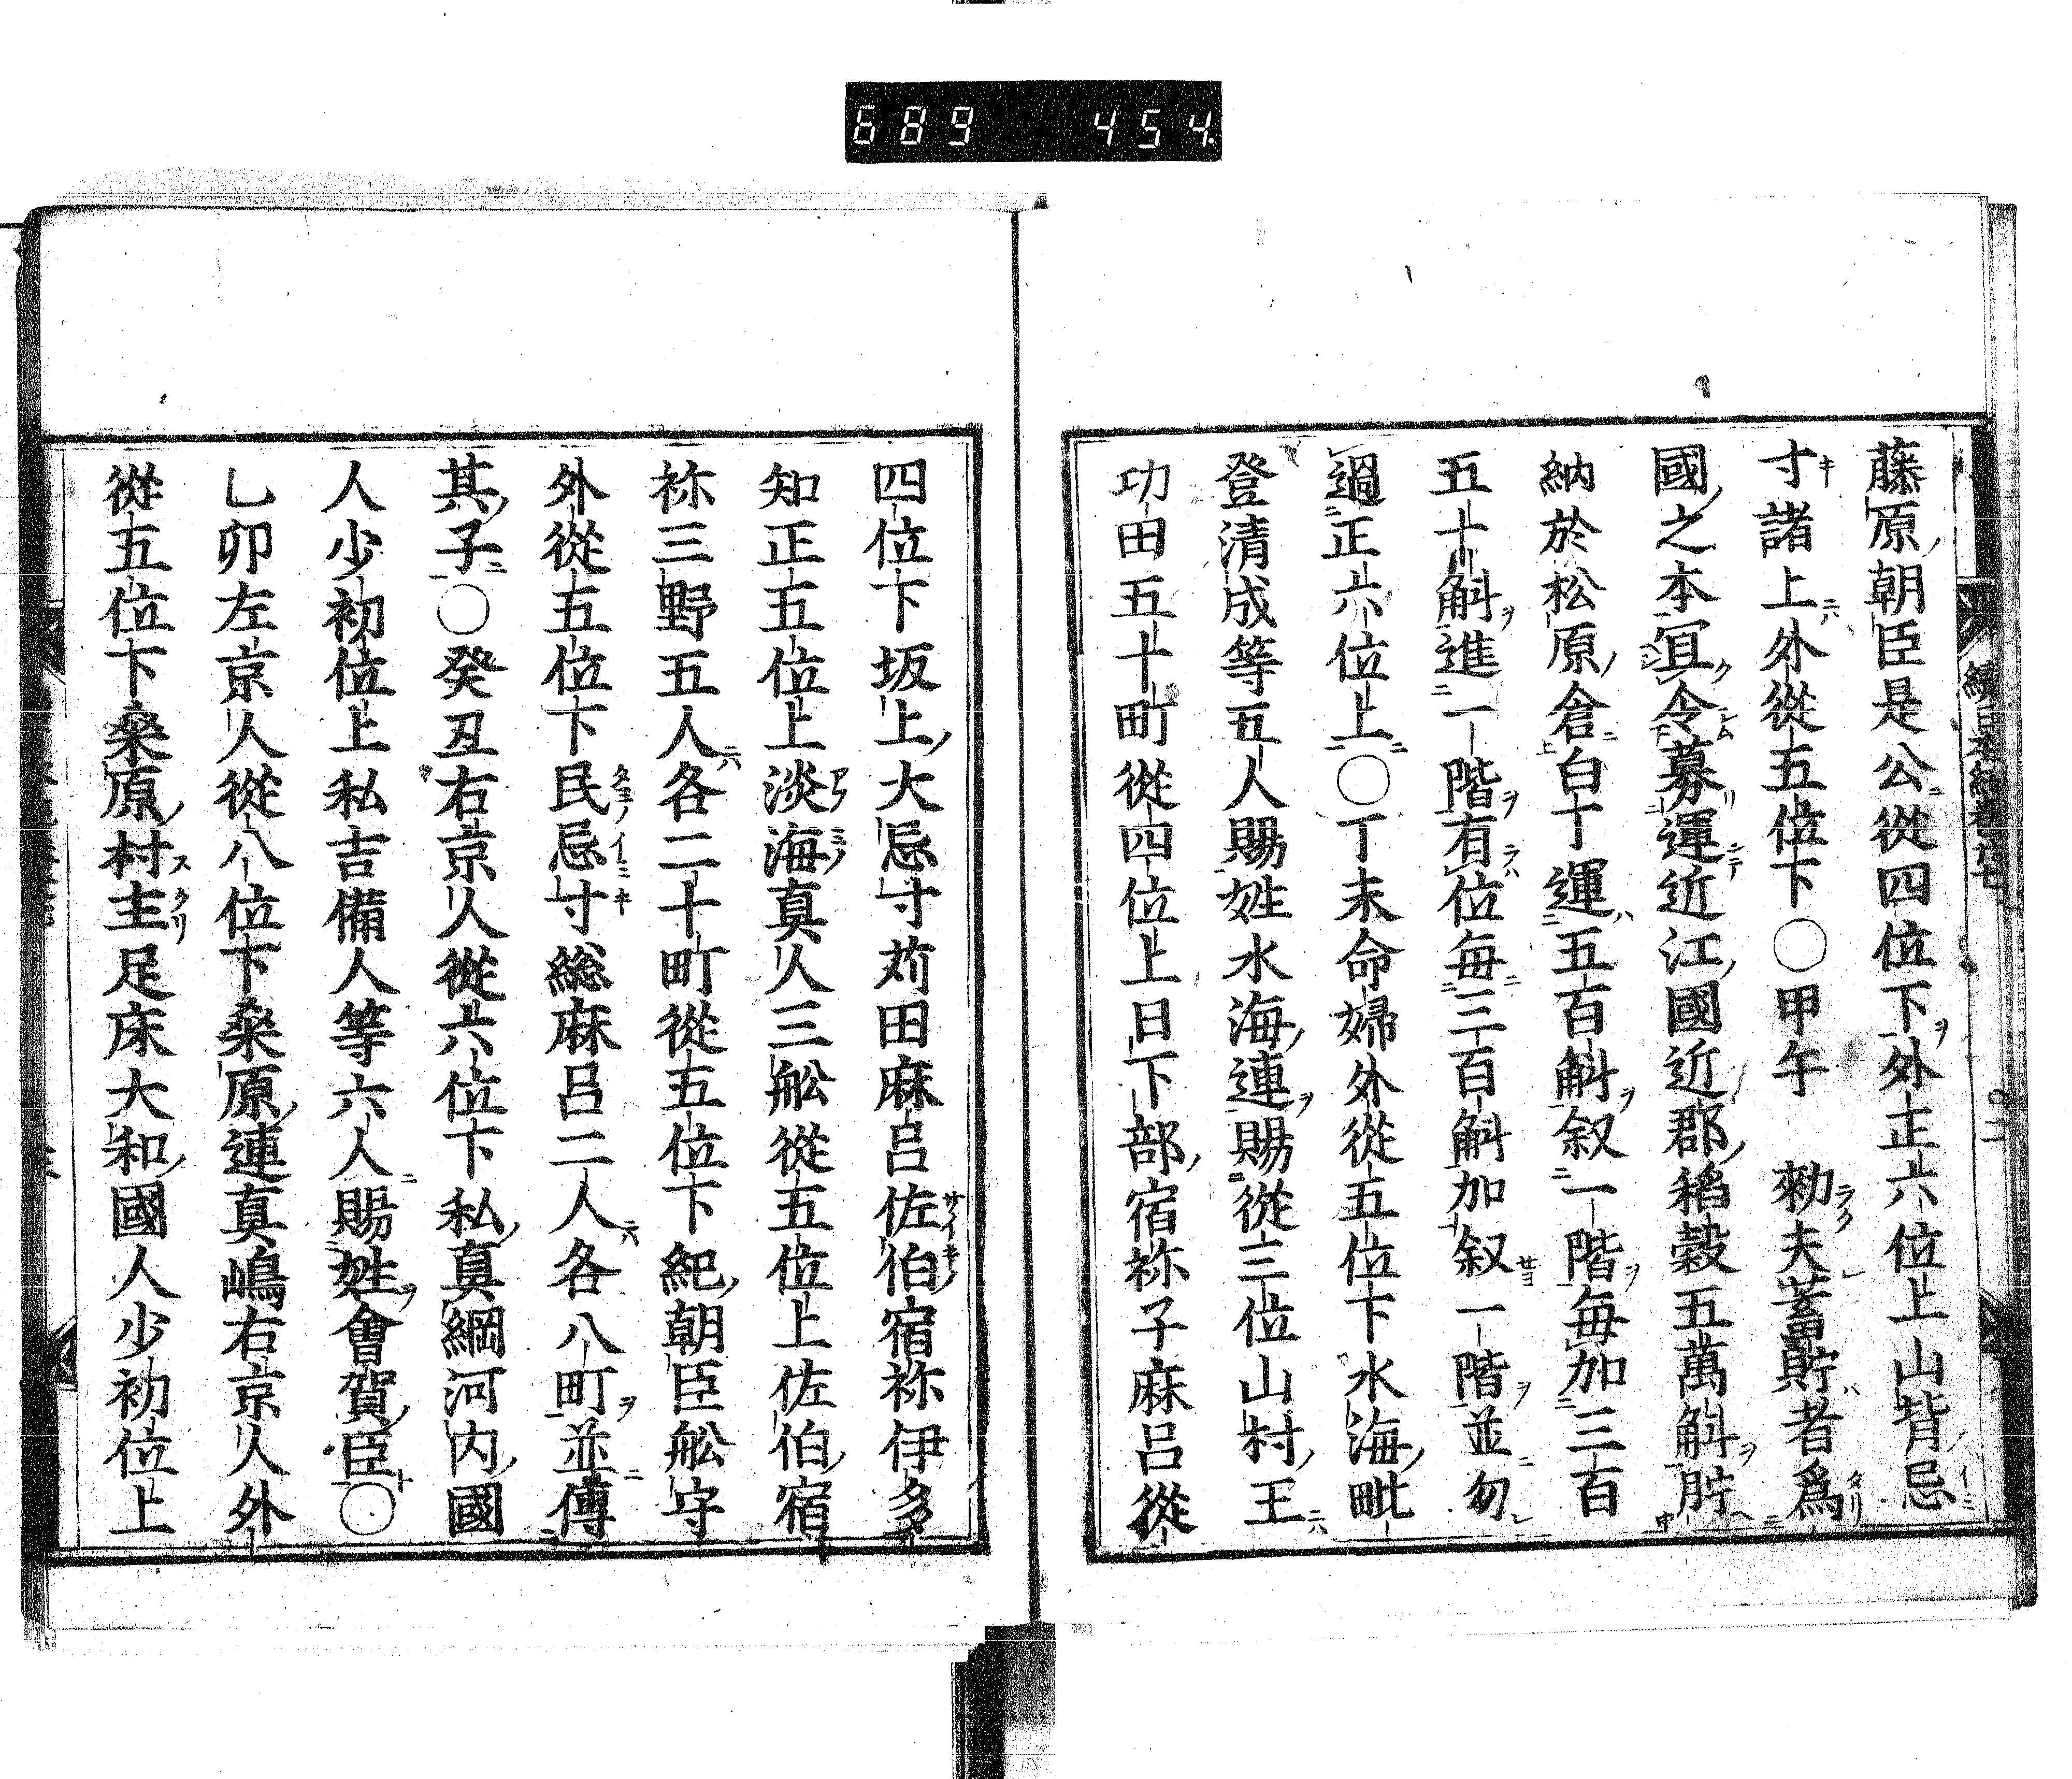 689 454.
藤原朝臣是公從四位下外正六位上山背忌
寸諸上外從五位下○甲午 勑夫蓄貯者爲
國之本宜令募運近江國近郡稻穀五萬斛貯
納於松原倉白丁運五百斛叙一階毎加三百
五十斛進一階有位毎三百斛加叙一階並勿
過正六位上○丁未命婦外從五位下水海毗
登清成等五人賜姓水海連賜從三位山村王
功田五十町從四位上日下部宿祢子麻呂從
四位下坂上大忌寸苅田麻呂佐伯宿祢伊多
知正五位上淡海真人三舩從五位上佐伯宿
祢三野五人各二十町從五位下紀朝臣舩守
外從五位下民忌寸総麻呂二人各八町並傳
其子○癸丑右京人從六位下私真綱河内國
人少初位上私吉備人等六人賜姓會賀臣○
乙卯左京人從八位下桒原連真嶋右京人外
從五位下桒原村主足床大和國人少初位上